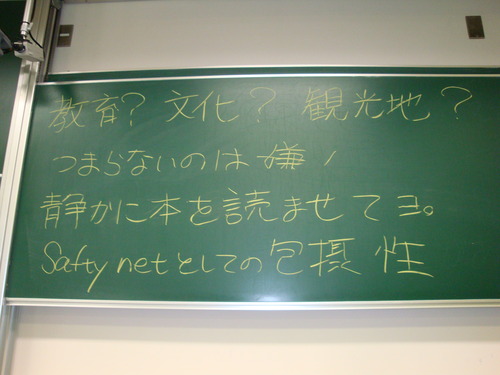 教育? 文化? 観光地?
つまらないのは嫌!
静かに本を読ませてヨ。
Safty netとしての包摂性